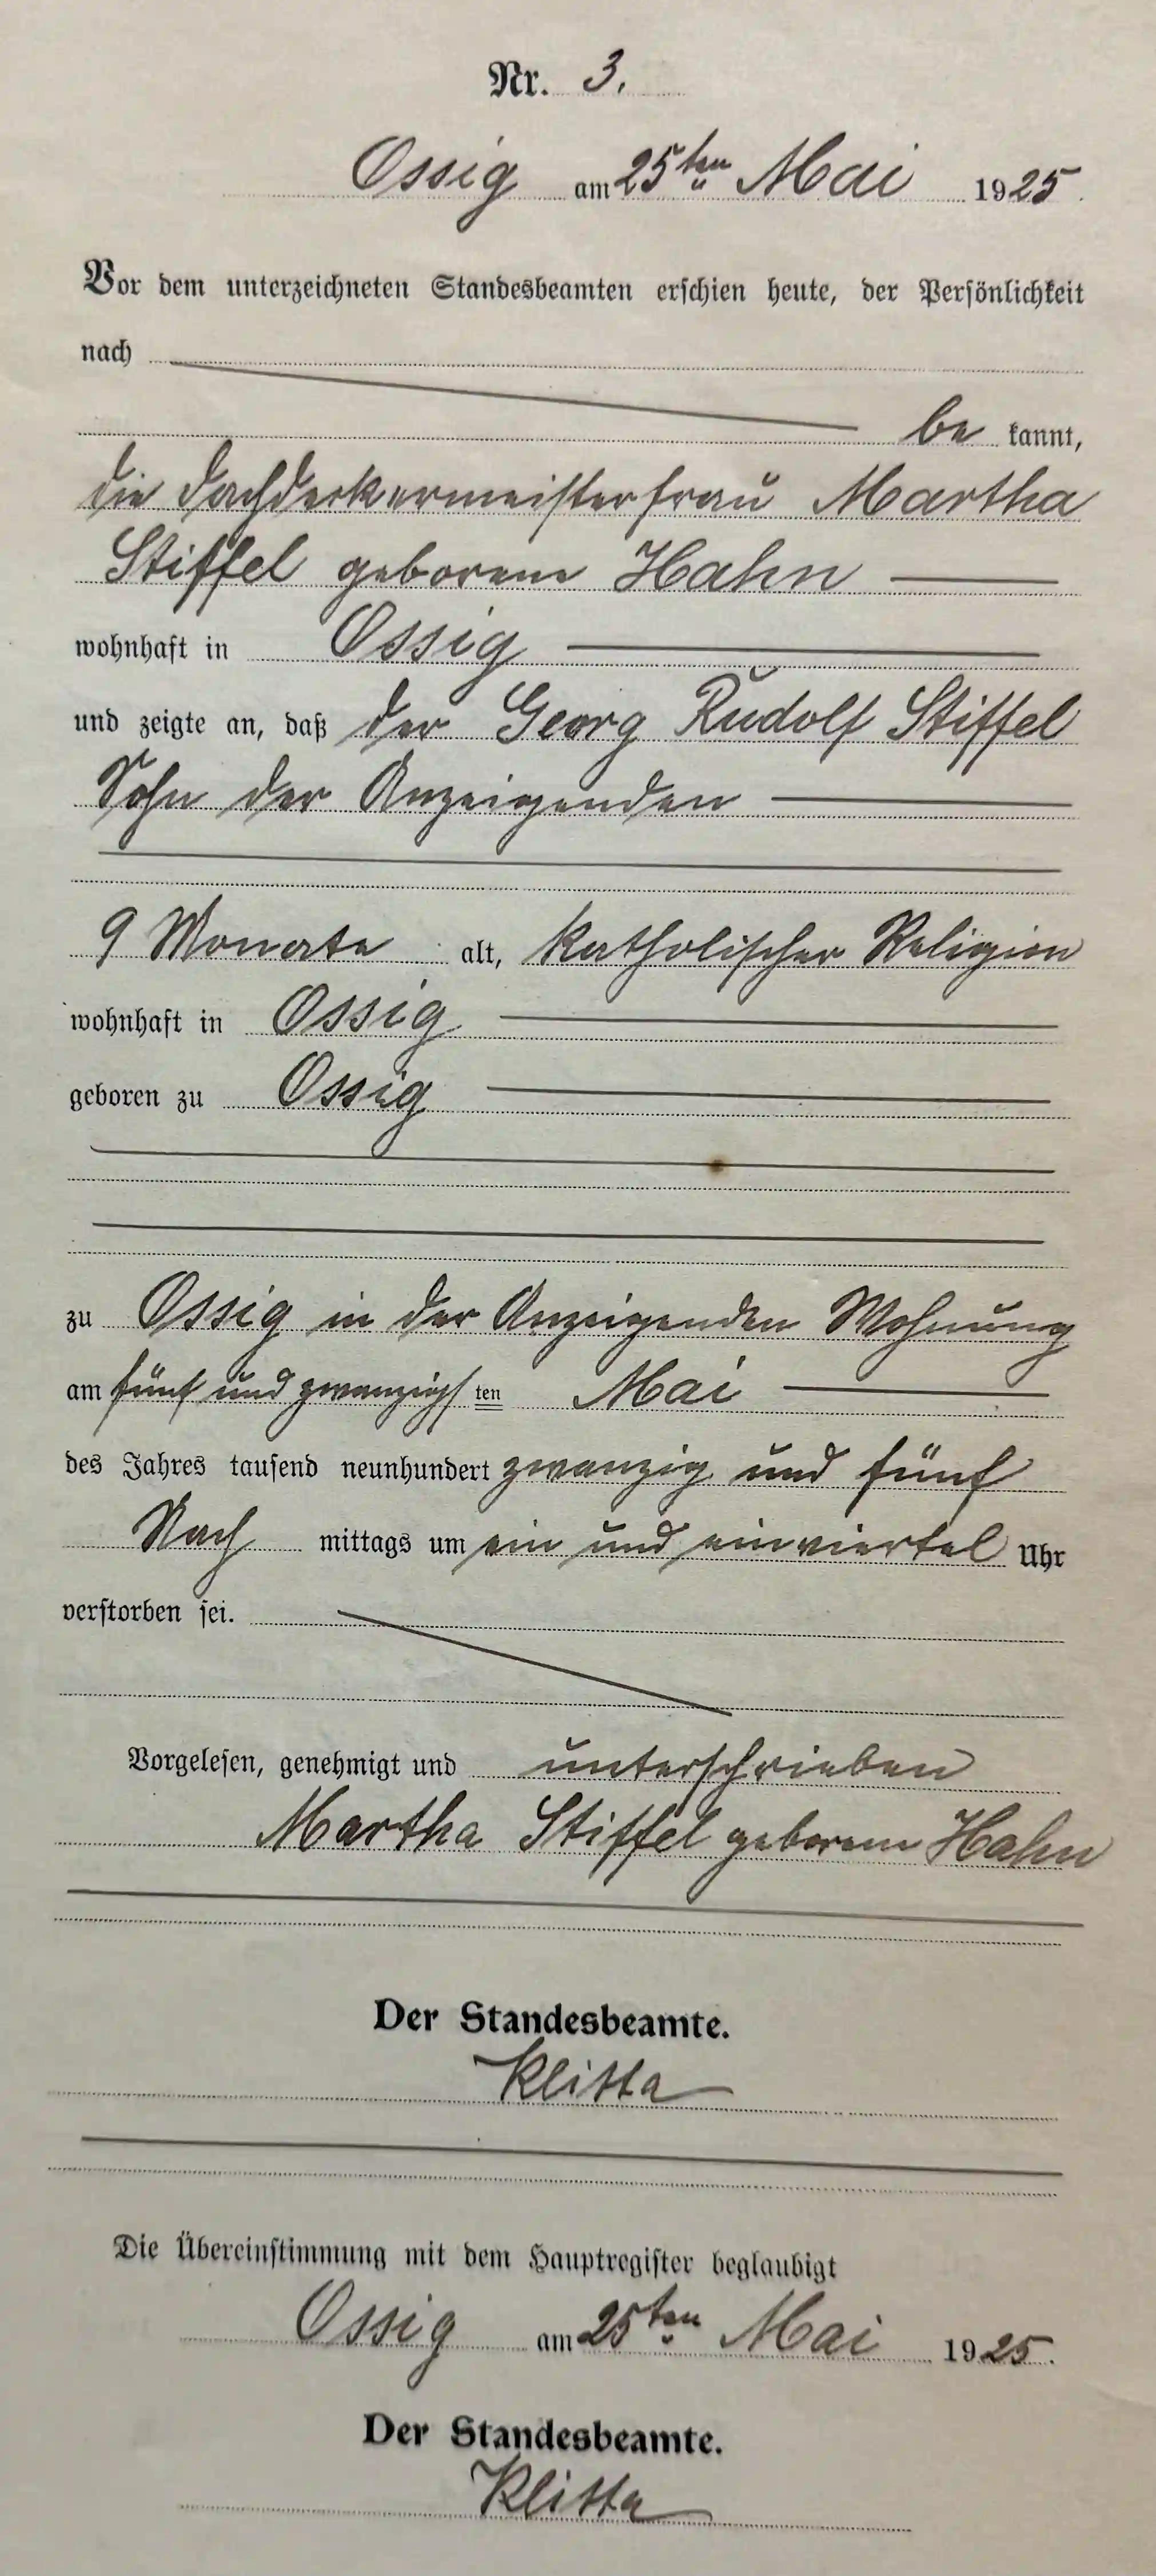 Nr. 3.
Ossig am 25ten Mai 1925.
Vor dem unterzeichneten Standesbeamten erschien heute, der Persönlichkeit
nach
be kannt,
die Dachdeckermeisterfrau Martha
Stiffel geborene Hahn
wohnhaft in Ossig
und zeigte an, daß der Georg Rudolf Stiffel
Sohn der Anzeigenden
9 Monate alt, katholischer Religion
wohnhaft in Ossig
geboren zu Ossig
zu Ossig in der Anzeigenden Wohnung
am fünf und zwanzigsten Mai
des Jahres tausend neunhundert zwanzig und fünf
Nach mittags um ein und einviertel Uhr
verstorben sei.
Vorgelesen, genehmigt und unterschrieben
Martha Stiffel geborene Hahn
Der Standesbeamte.
Die Übereinstimmung mit dem Hauptregister beglaubigt
Ossig am 25ten Mai 1925.
Der Standesbeamte.